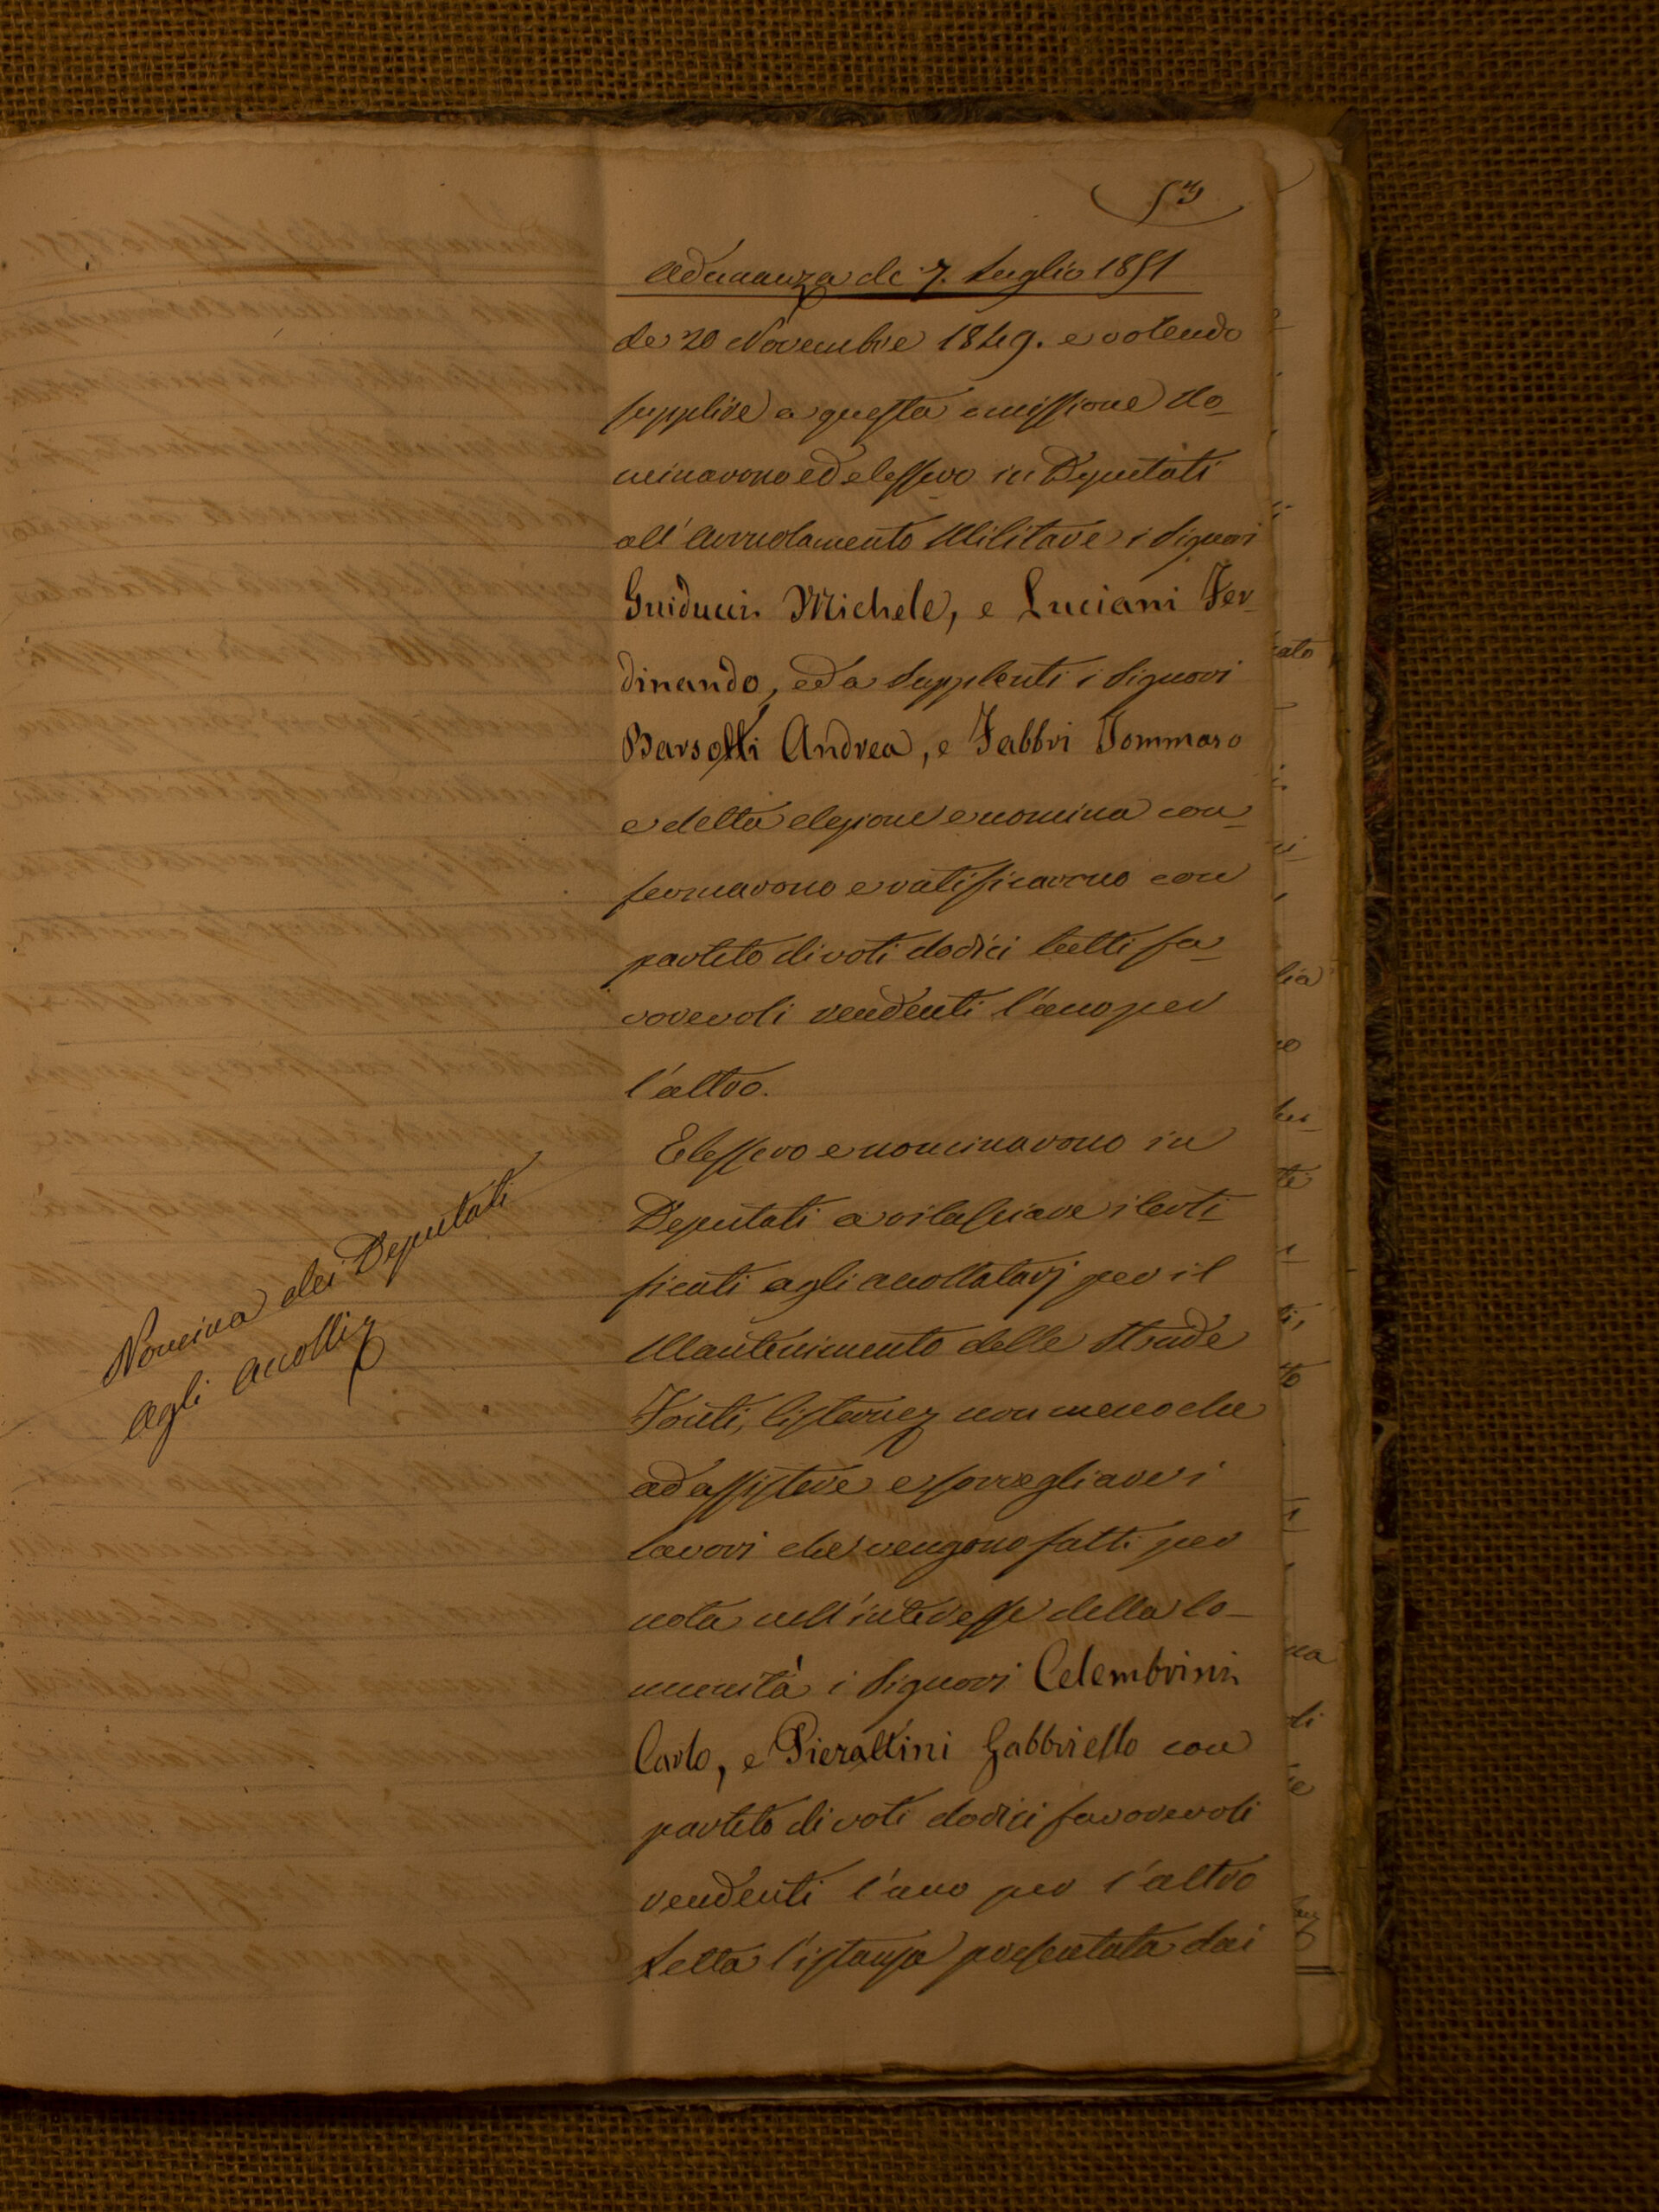 59
Adunanza de 7. Luglio 1851
de 20 Novembre 1849. e volendo
supplire a questa omissione no_
minarono ed elessero in Deputati
all'Arruolamento Militare i Signori
Guiducci Michele, e Luciani Fer_
dinando, ed a Supplenti i Signori
Barsotti Andrea, e Fabbri Tommaso
e detta elezione e nomina con_
fermarono e ratificarono con
partito di voti dodici tutti fa_
vorevoli rendenti l'uno per
l'altro.
Elessero e nominarono in
Deputati a rilasciare i Certi_
ficati agli accollatarj per il
Mantenimento delle Strade
Fonti, Cisterne non meno che
ad assistere e sorvegliare i
lavori che vengono fatti per
nota nell'interesse della Co_
munità i Signori Celembrini
Carlo, e Pierattini Gabbriello con
partito di voti dodici favorevoli
rendenti l'uno per l'altro
Letta l'istanza presentata dai
Nomina dei Deputati
agli accolli